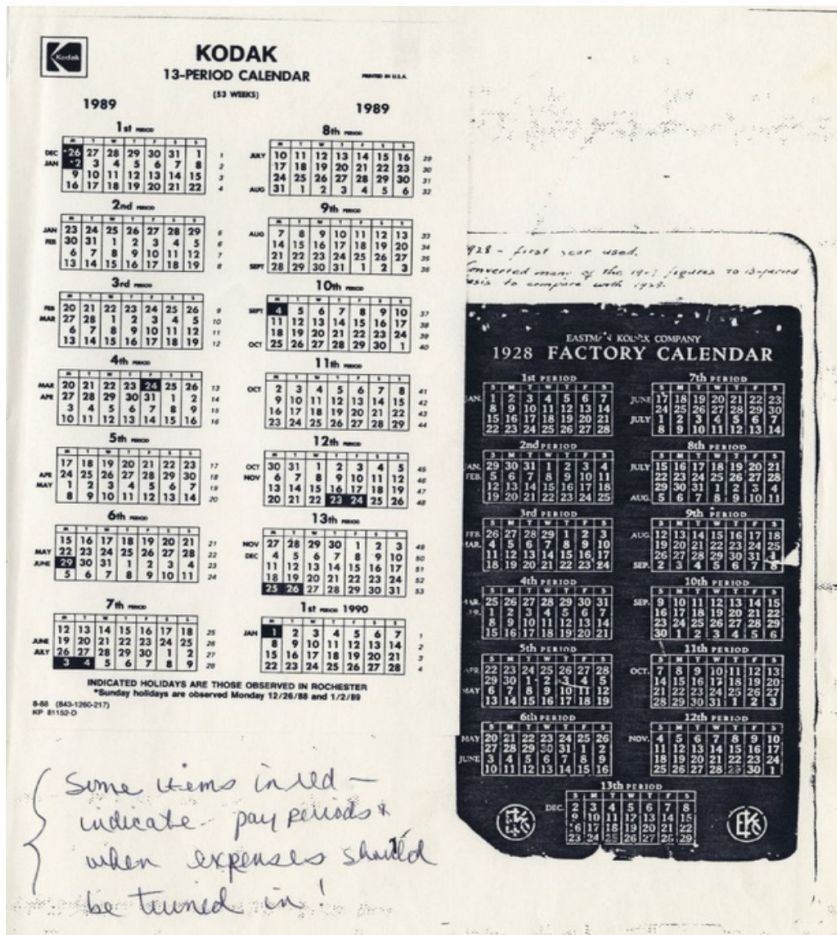 Kodak
KODAK
13-PERIOD CALENDAR
PRINTED IN U.S.A.
(53 WEEKS)
1989
1st PERIOD
M T W T F S S
DEC *26 27 28 29 30 31 1 1
JAN *2 3 4 5 6 7 8 2
9 10 11 12 13 14 15 3
16 17 18 19 20 21 22 4
2nd PERIOD
M T W T F S S
JAN 23 24 25 26 27 28 29 5
FEB 30 31 1 2 3 4 5 6
6 7 8 9 10 11 12 7
13 14 15 16 17 18 19 8
3rd PERIOD
M T W T F S S
FEB 20 21 22 23 24 25 26 9
MAR 27 28 1 2 3 4 5 10
6 7 8 9 10 11 12 11
13 14 15 16 17 18 19 12
4th PERIOD
M T W T F S S
MAR 20 21 22 23 24 25 26 13
APR 27 28 29 30 31 1 2 14
3 4 5 6 7 8 9 15
10 11 12 13 14 15 16 16
5th PERIOD
M T W T F S S
17 18 19 20 21 22 23 17
APR 24 25 26 27 28 29 30 18
MAY 1 2 3 4 5 6 7 19
8 9 10 11 12 13 14 20
6th PERIOD
M T W T F S S
15 16 17 18 19 20 21 21
MAY 22 23 24 25 26 27 28 22
JUNE 29 30 31 1 2 3 4 23
5 6 7 8 9 10 11 24
7th PERIOD
M T W T F S S
12 13 14 15 16 17 18 25
JUNE 19 20 21 22 23 24 25 26
JULY 26 27 28 29 30 1 2 27
3 4 5 6 7 8 9 28
1989
8th PERIOD
M T W T F S S
JULY 10 11 12 13 14 15 16 29
17 18 19 20 21 22 23 30
24 25 26 27 28 29 30 31
AUG 31 1 2 3 4 5 6 32
9th PERIOD
M T W T F S S
AUG 7 8 9 10 11 12 13 33
14 15 16 17 18 19 20 34
21 22 23 24 25 26 27 35
SEPT 28 29 30 31 1 2 3 36
10th PERIOD
M T W T F S S
SEPT 4 5 6 7 8 9 10 37
11 12 13 14 15 16 17 38
18 19 20 21 22 23 24 39
OCT 25 26 27 28 29 30 1 40
11th PERIOD
M T W T F S S
OCT 2 3 4 5 6 7 8 41
9 10 11 12 13 14 15 42
16 17 18 19 20 21 22 43
23 24 25 26 27 28 29 44
12th PERIOD
M T W T F S S
OCT 30 31 1 2 3 4 5 45
NOV 6 7 8 9 10 11 12 46
13 14 15 16 17 18 19 47
20 21 22 23 24 25 26 48
13th PERIOD
M T W T F S S
NOV 27 28 29 30 1 2 3 49
DEC 4 5 6 7 8 9 10 50
11 12 13 14 15 16 17 51
18 19 20 21 22 23 24 52
25 26 27 28 29 30 31 53
1st PERIOD 1990
M T W T F S S
JAN 1 2 3 4 5 6 7 1
8 9 10 11 12 13 14 2
15 16 17 18 19 20 21 3
22 23 24 25 26 27 28 4
INDICATED HOLIDAYS ARE THOSE OBSERVED IN ROCHESTER
*Sunday holidays are observed Monday 12/26/88 and 1/2/89
8-88 (843-1260-217)
KP 81152-D
Some items in red —
indicate pay periods &
when expenses should
be turned in!
928 - first year used.
converted many of the 1927 figures to 13-period
to compare with 1928.
EASTMAN KODAK COMPANY
1928 FACTORY CALENDAR
1st PERIOD
S M T W T F S
JAN. 1 2 3 4 5 6 7
8 9 10 11 12 13 14
15 16 17 18 19 20 21
22 23 24 25 26 27 28
2nd PERIOD
S M T W T F S
JAN. 29 30 31 1 2 3 4
FEB. 5 6 7 8 9 10 11
12 13 14 15 16 17 18
19 20 21 22 23 24 25
3rd PERIOD
S M T W T F S
FEB 26 27 28 29 1 2 3
MAR. 4 5 6 7 8 9 10
11 12 13 14 15 16 17
18 19 20 21 22 23 24
4th PERIOD
S M T W T F S
MAR. 25 26 27 28 29 30 31
1 2 3 4 5 6 7
8 9 10 11 12 13 14
15 16 17 18 19 20 21
5th PERIOD
S M T W T F S
APR. 22 23 24 25 26 27 28
29 30 1 2 3 4 5
MAY 6 7 8 9 10 11 12
13 14 15 16 17 18 19
6th PERIOD
S M T W T F S
MAY 20 21 22 23 24 25 26
27 28 29 30 31 1 2
JUNE 3 4 5 6 7 8 9
10 11 12 13 14 15 16
7th PERIOD
S M T W T F S
JUNE 17 18 19 20 21 22 23
24 25 26 27 28 29 30
JULY 1 2 3 4 5 6 7
8 9 10 11 12 13 14
8th PERIOD
S M T W T F S
JULY 15 16 17 18 19 20 21
22 23 24 25 26 27 28
29 30 31 1 2 3 4
AUG. 5 6 7 8 9 10 11
9th PERIOD
S M T W T F S
AUG. 12 13 14 15 16 17 18
19 20 21 22 23 24 25
26 27 28 29 30 31 1
SEP. 2 3 4 5 6 7 8
10th PERIOD
S M T W T F S
SEP. 9 10 11 12 13 14 15
16 17 18 19 20 21 22
23 24 25 26 27 28 29
30 1 2 3 4 5 6
11th PERIOD
S M T W T F S
OCT. 7 8 9 10 11 12 13
14 15 16 17 18 19 20
21 22 23 24 25 26 27
28 29 30 31 1 2 3
12th PERIOD
S M T W T F S
NOV. 4 5 6 7 8 9 10
11 12 13 14 15 16 17
18 19 20 21 22 23 24
25 26 27 28 29 30 1
13th PERIOD
S M T W T F S
DEC. 2 3 4 5 6 7 8
9 10 11 12 13 14 15
16 17 18 19 20 21 22
23 24 25 26 27 28 29